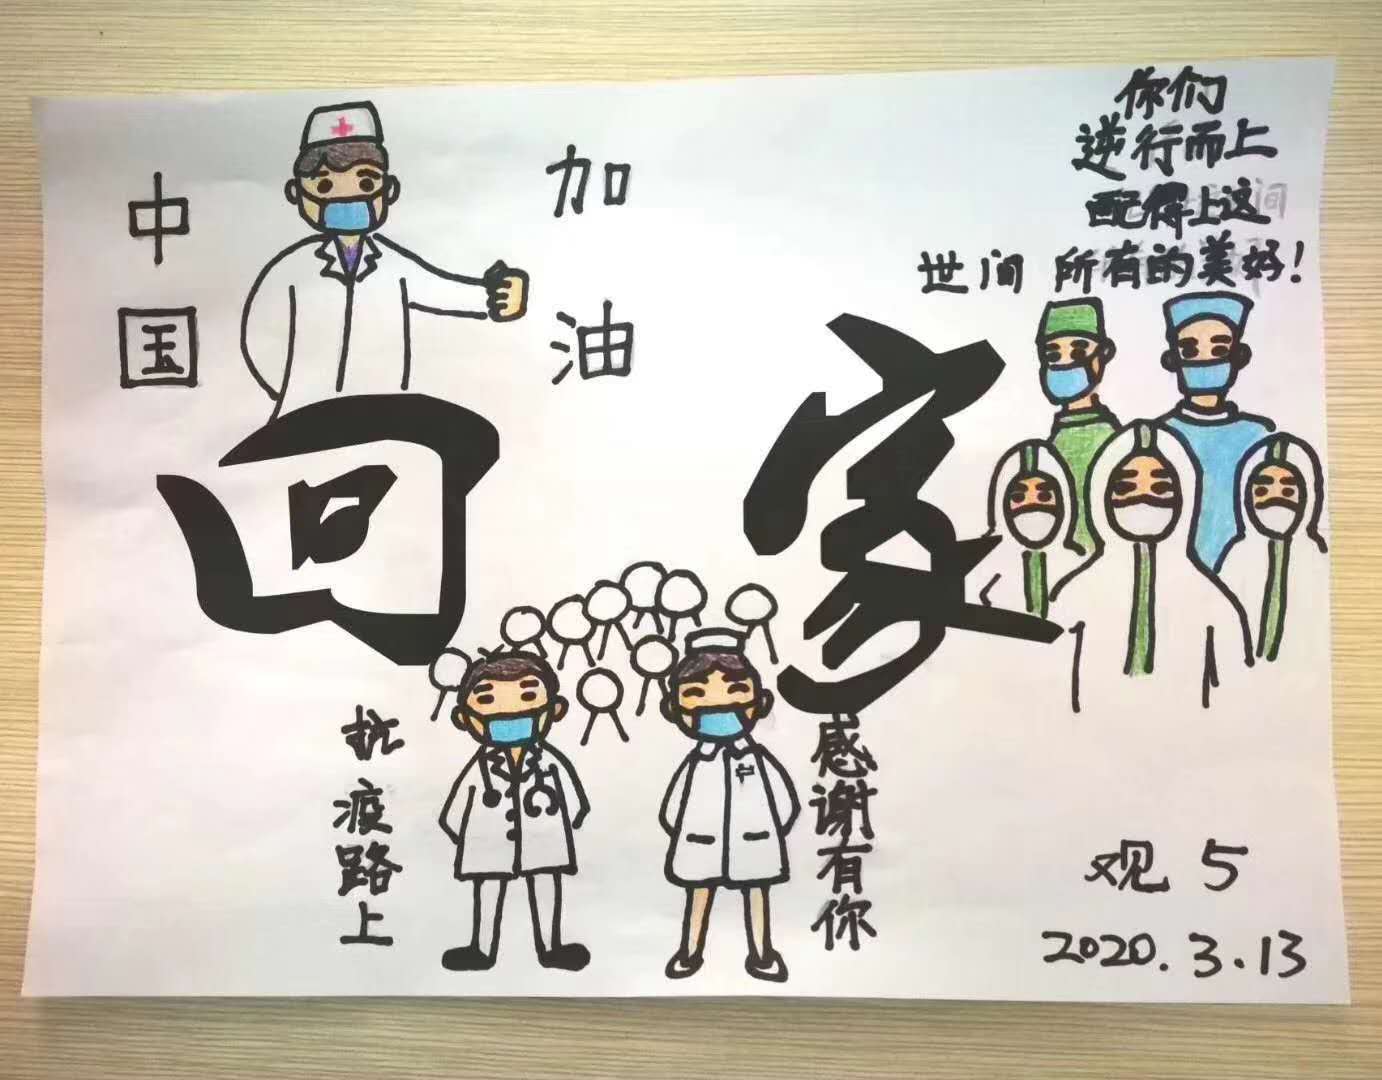 中国
加油
你们
逆行而上
配得上这
世间 所有的美好！
回家
抗疫路上
感谢有你
观 5
2020.3.13